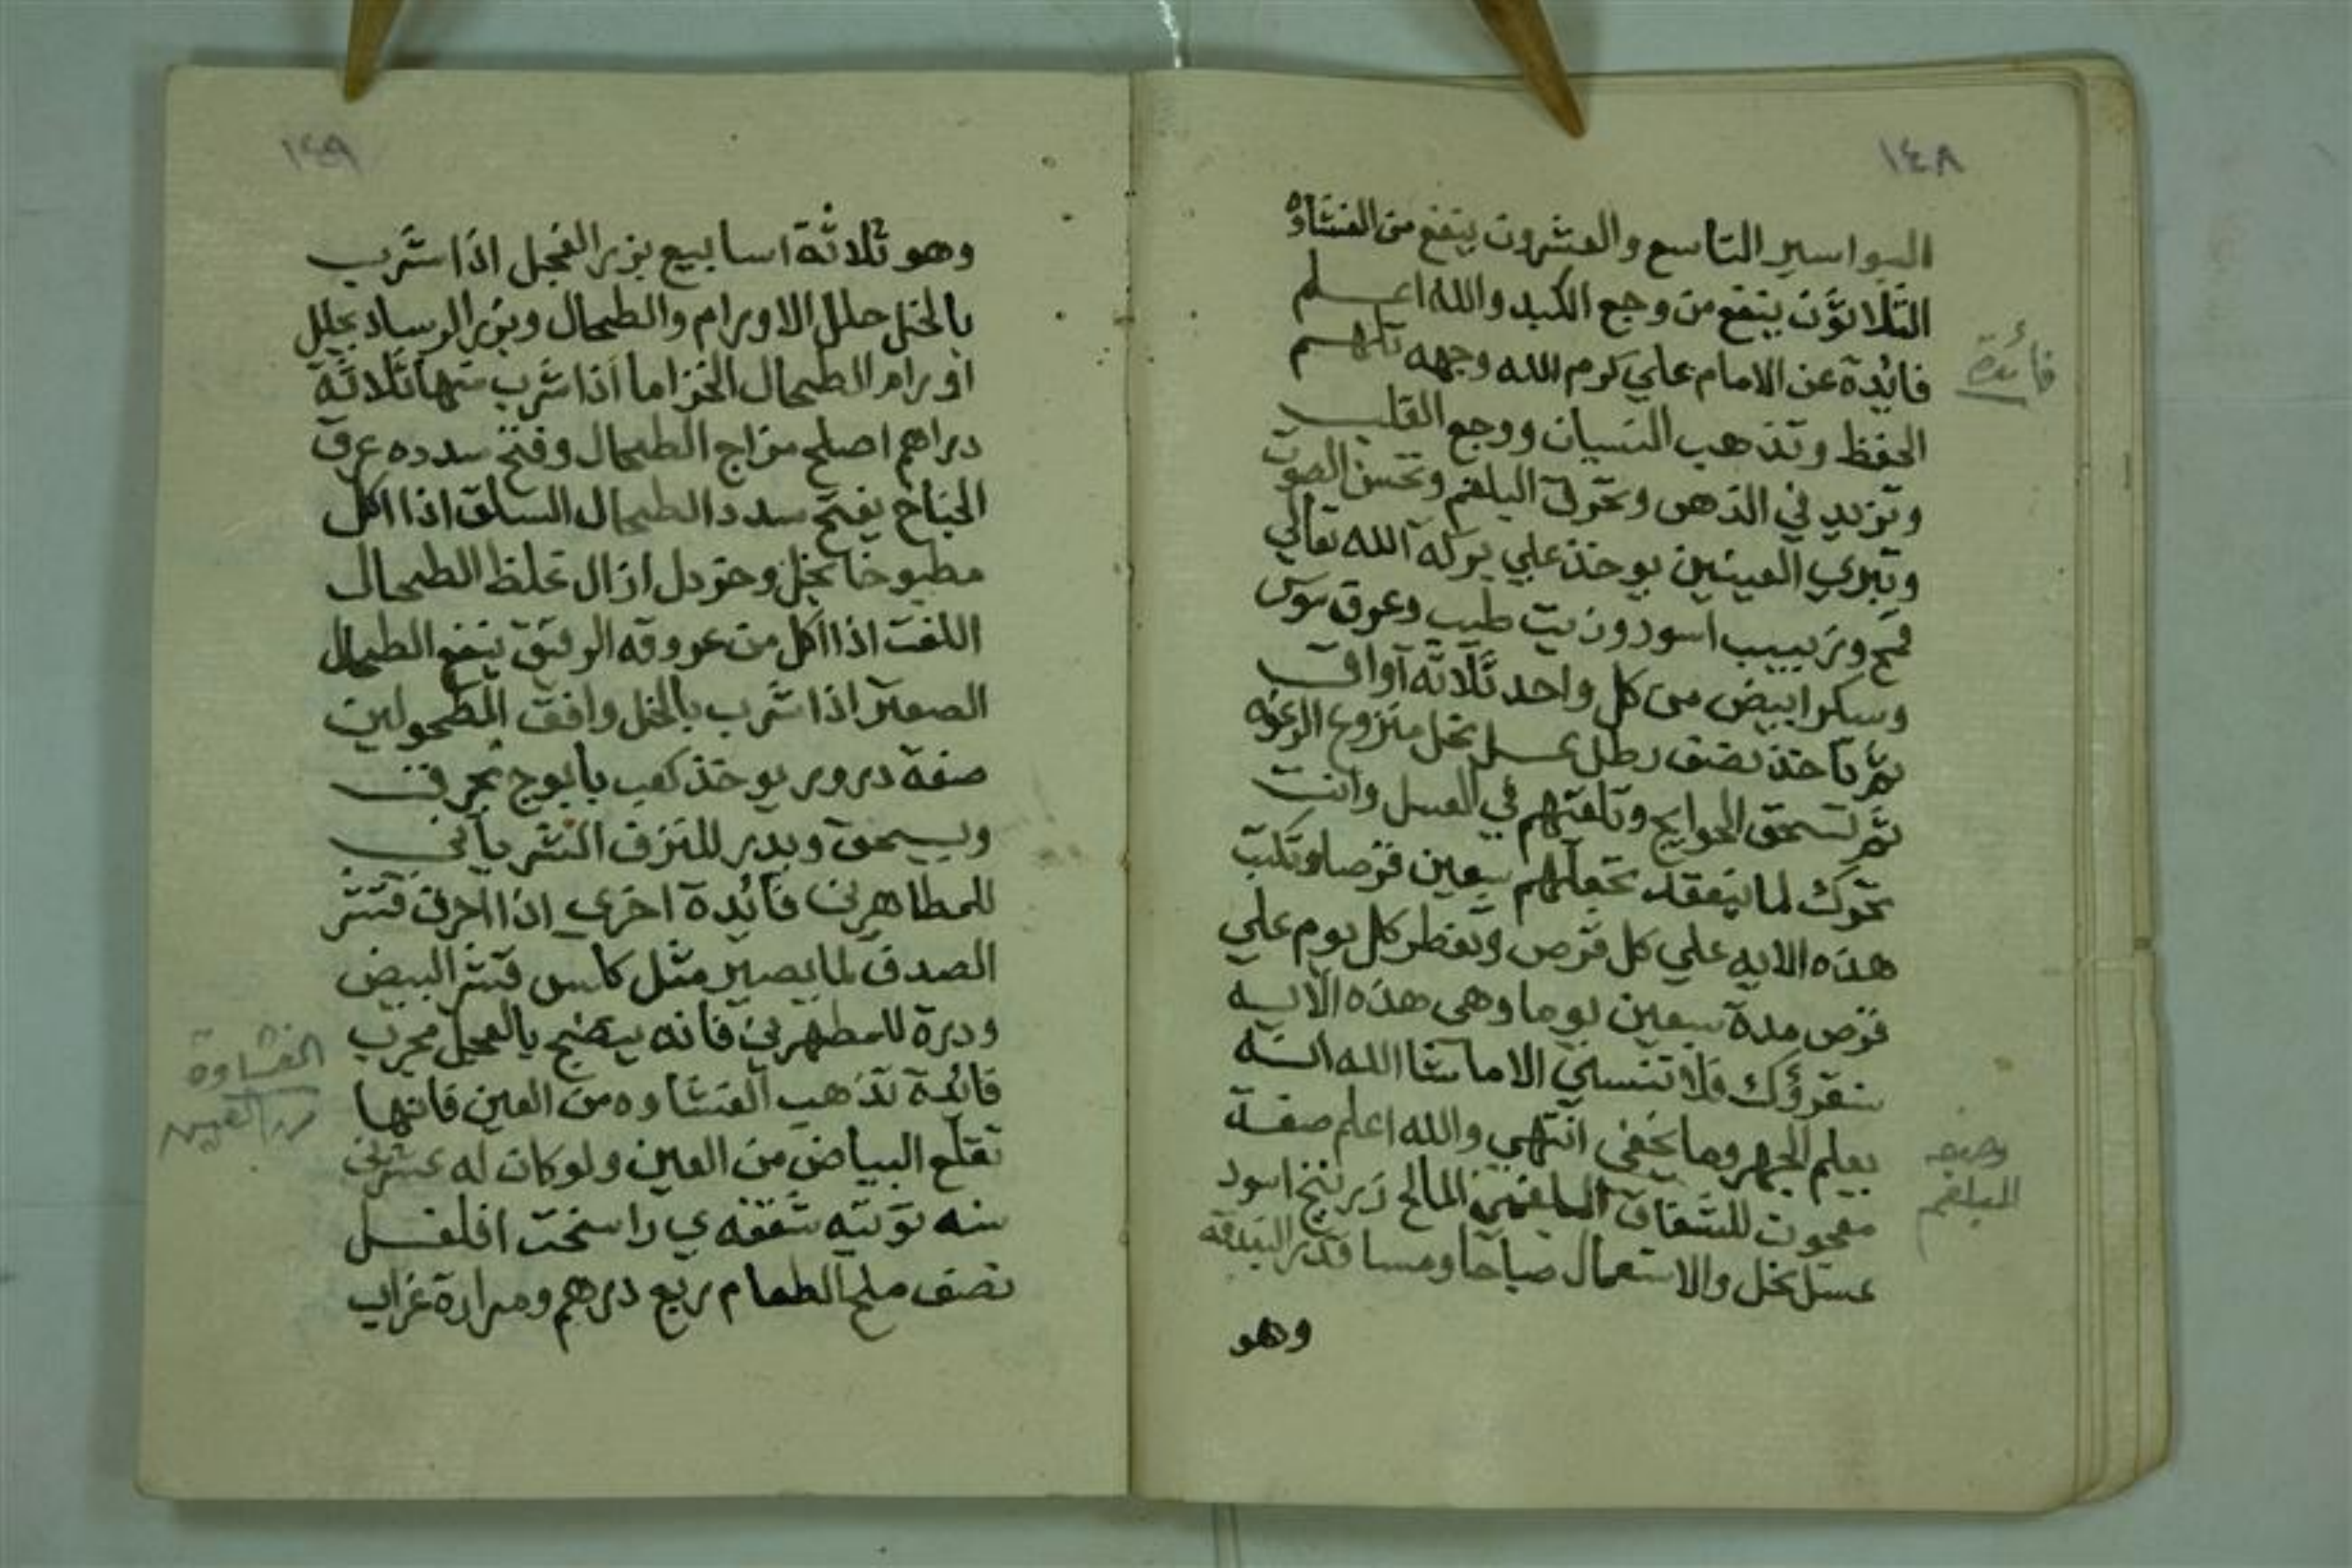 ١٤٨
البواسير التاسع والعشرون ينفع من الغشاوه
الثلاثون ينفع من وجع الكبد والله اعلم
فائدة
فايدة عن الامام علي كرم الله وجهه تلهم
الحفظ وتذهب النسيان ووجع القلب
وتزيد في الذهن وتحرق البلغم وتحسن الصوت
وتبري العينين يوخذ علي بركة الله تعالي
قمح وزبيب اسود وزيت طيب وعرق سوس
وسكر ابيض من كل واحد ثلاثه آواق
ثم تاخذ نصف رطل عسل نحل منزوع الرغوه
ثم تسحق الحوايج وتلقتهم في العسل وانت
تحرك لما ينعقد تجعلهم سبعين قرصا وتكتب
هذه الايه علي كل قرص وتفطر كل يوم علي
قرص مدة سبعين يوما وهي هذه الايه
سنقرؤك فلا تنسي الا ما شا الله انه
يعلم الجهر وما يخفي انتهي والله اعلم صفة
وصفه
البلغم
معجون للشقاق البلغمي المالح زرنيخ اسود
عسل نحل والاستعمال صباحا ومسا قدر البندقه
وهو
١٤٩
وهو ثلاثة اسابيع بزر الفجل اذا شرب
بالخل حلل الاورام والطحال وبزر الرساد يحلل
اورام الطحال الخزاما اذا شرب منها ثلاثة
دراهم اصلح مزاج الطحال وفتح سدده عرق
الجناح يفتح سدد الطحال السلق اذا اكل
مطبوخا بخل وخردل ازال غلظ الطحال
اللفت اذا اكل من عروقه الرقيق ينفع الطحال
الصعتر اذا شرب بالخل وافق المطحولين
صفة درور يوخذ كعب بابوج يحرق
ويسحق ويدر للنزف النشر ياتي
للمطاهرين فائدة اخري اذا احرق قشر
الصدف لما يصير مثل كلس قشر البيض
ودرة للمطهرين فانه ينضج بالعجل مجرب
الغشاوة
من العين
فائدة تذهب الغشاوه من العين فانها
تقلع البياض من العين ولو كان له عشرين
سنه توتيه شفقه ي راسخت افلفل
نصف ملح الطعام ربع درهم ومرارة غراب